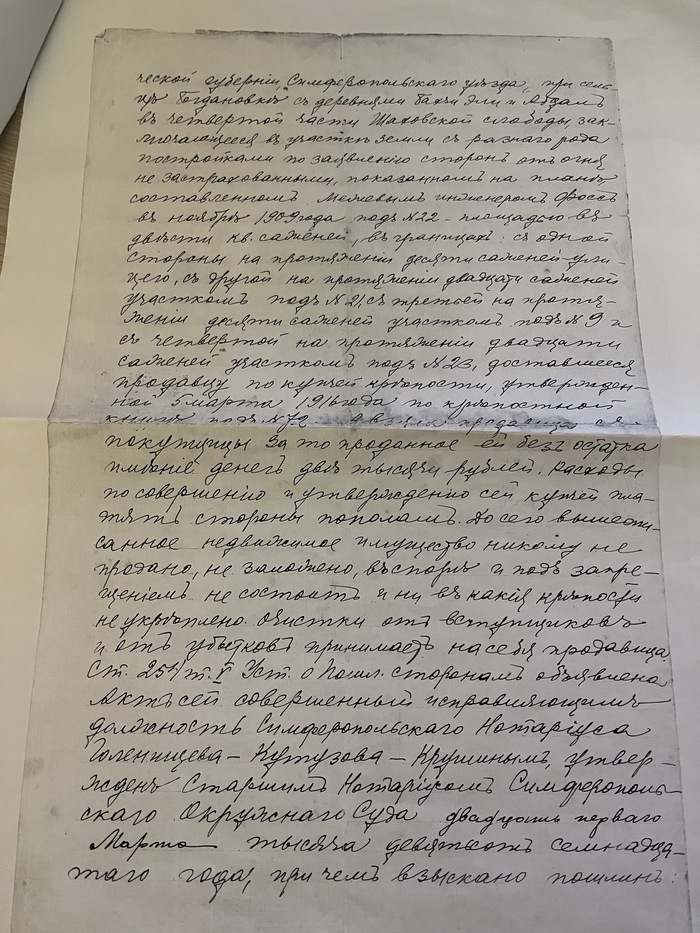 ческой губернiи, Симферопольскаго уѣзда, при сель-
цѣ Богдановкѣ съ деревнями Бахчи Эли и Абдалъ
въ четвертой части Шаховской слободы, зак-
лючающееся въ участкѣ земли съ разнаго рода
постройками по заявленiю сторонъ отъ огня
не застрахованными, показанномъ на планѣ
составленномъ Межевымъ инженеромъ Фоссъ
въ ноябрѣ 1909 года подъ №22 - площадью въ
двѣсти кв. саженей, въ границахъ: съ одной
стороны на протяженiи десяти саженей ули-
цею, съ другой на протяженiи двадцати саженей
участкомъ подъ №21, съ третьей на протя-
женiи десяти саженей участкомъ подъ №9 и
съ четвертой на протяженiи двадцати
саженей участкомъ подъ №23, доставшееся
продавцу по купчей крѣпости, утвержден-
ной 5 марта 1916 года по крѣпостной
книгѣ подъ №72 а взяла продавица съ
покупщицы за то проданное ей безъ остатка
имѣнiе денегъ двѣ тысячи рублей. Расходы
по совершенiю и утвержденiю сей купчей пла-
тятъ стороны пополамъ. До сего вышеопи-
санное недвижимое имущество никому не
продано, не заложено, въ спорѣ и подъ запре-
щенiемъ не состоитъ и ни въ какiя крѣпости
не укрѣплено. Очистки отъ вступщиковъ
и отъ убытковъ принимаетъ на себя продавица.
Ст. 254 т. V Уст. о Пошл. сторонамъ объявлена
Актъ сей совершенный исправляющимъ
должность Симферопольскаго Нотарiуса
Голенищева - Кутузова - Крушинымъ, утвер-
жденъ Старшимъ Нотарiусомъ Симферополь-
скаго Окружнаго Суда двадцать перваго
Марта тысяча девятьсотъ семнадца-
таго года, при чемъ взыскано пошлинъ: